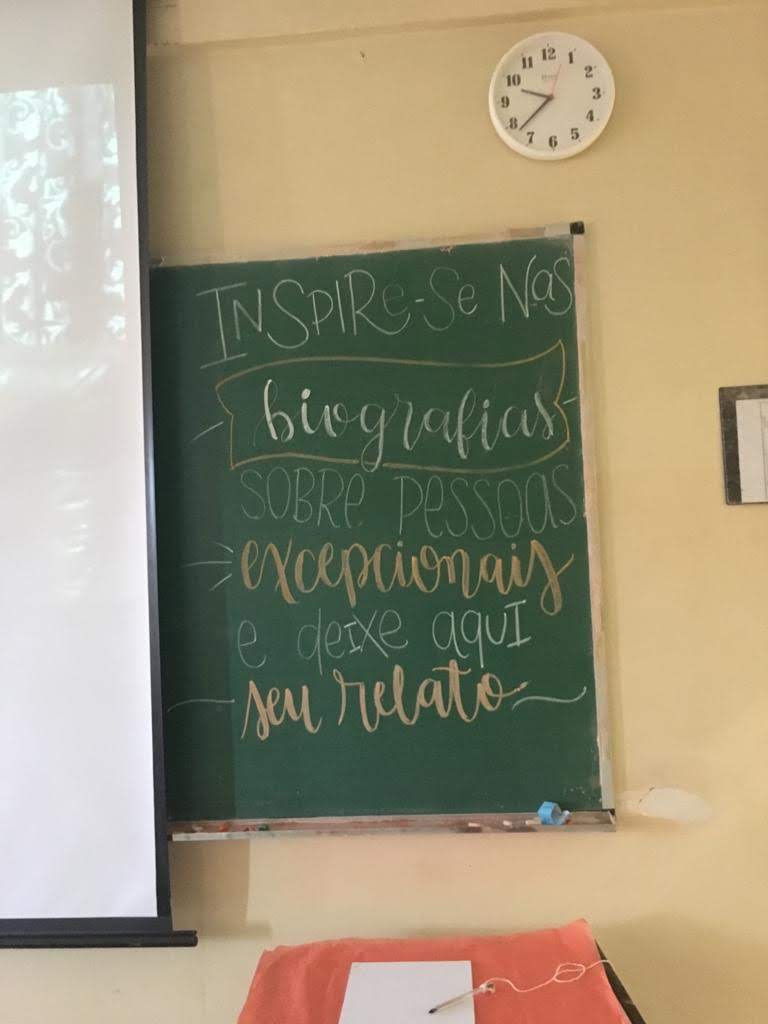 12
1
2
3
4
5
6
7
8
9
10
11
INSPIRe-Se NaS
biografias
SOBRe PeSSOAS
excepcionais
e DeIXe AQUI
seu relato